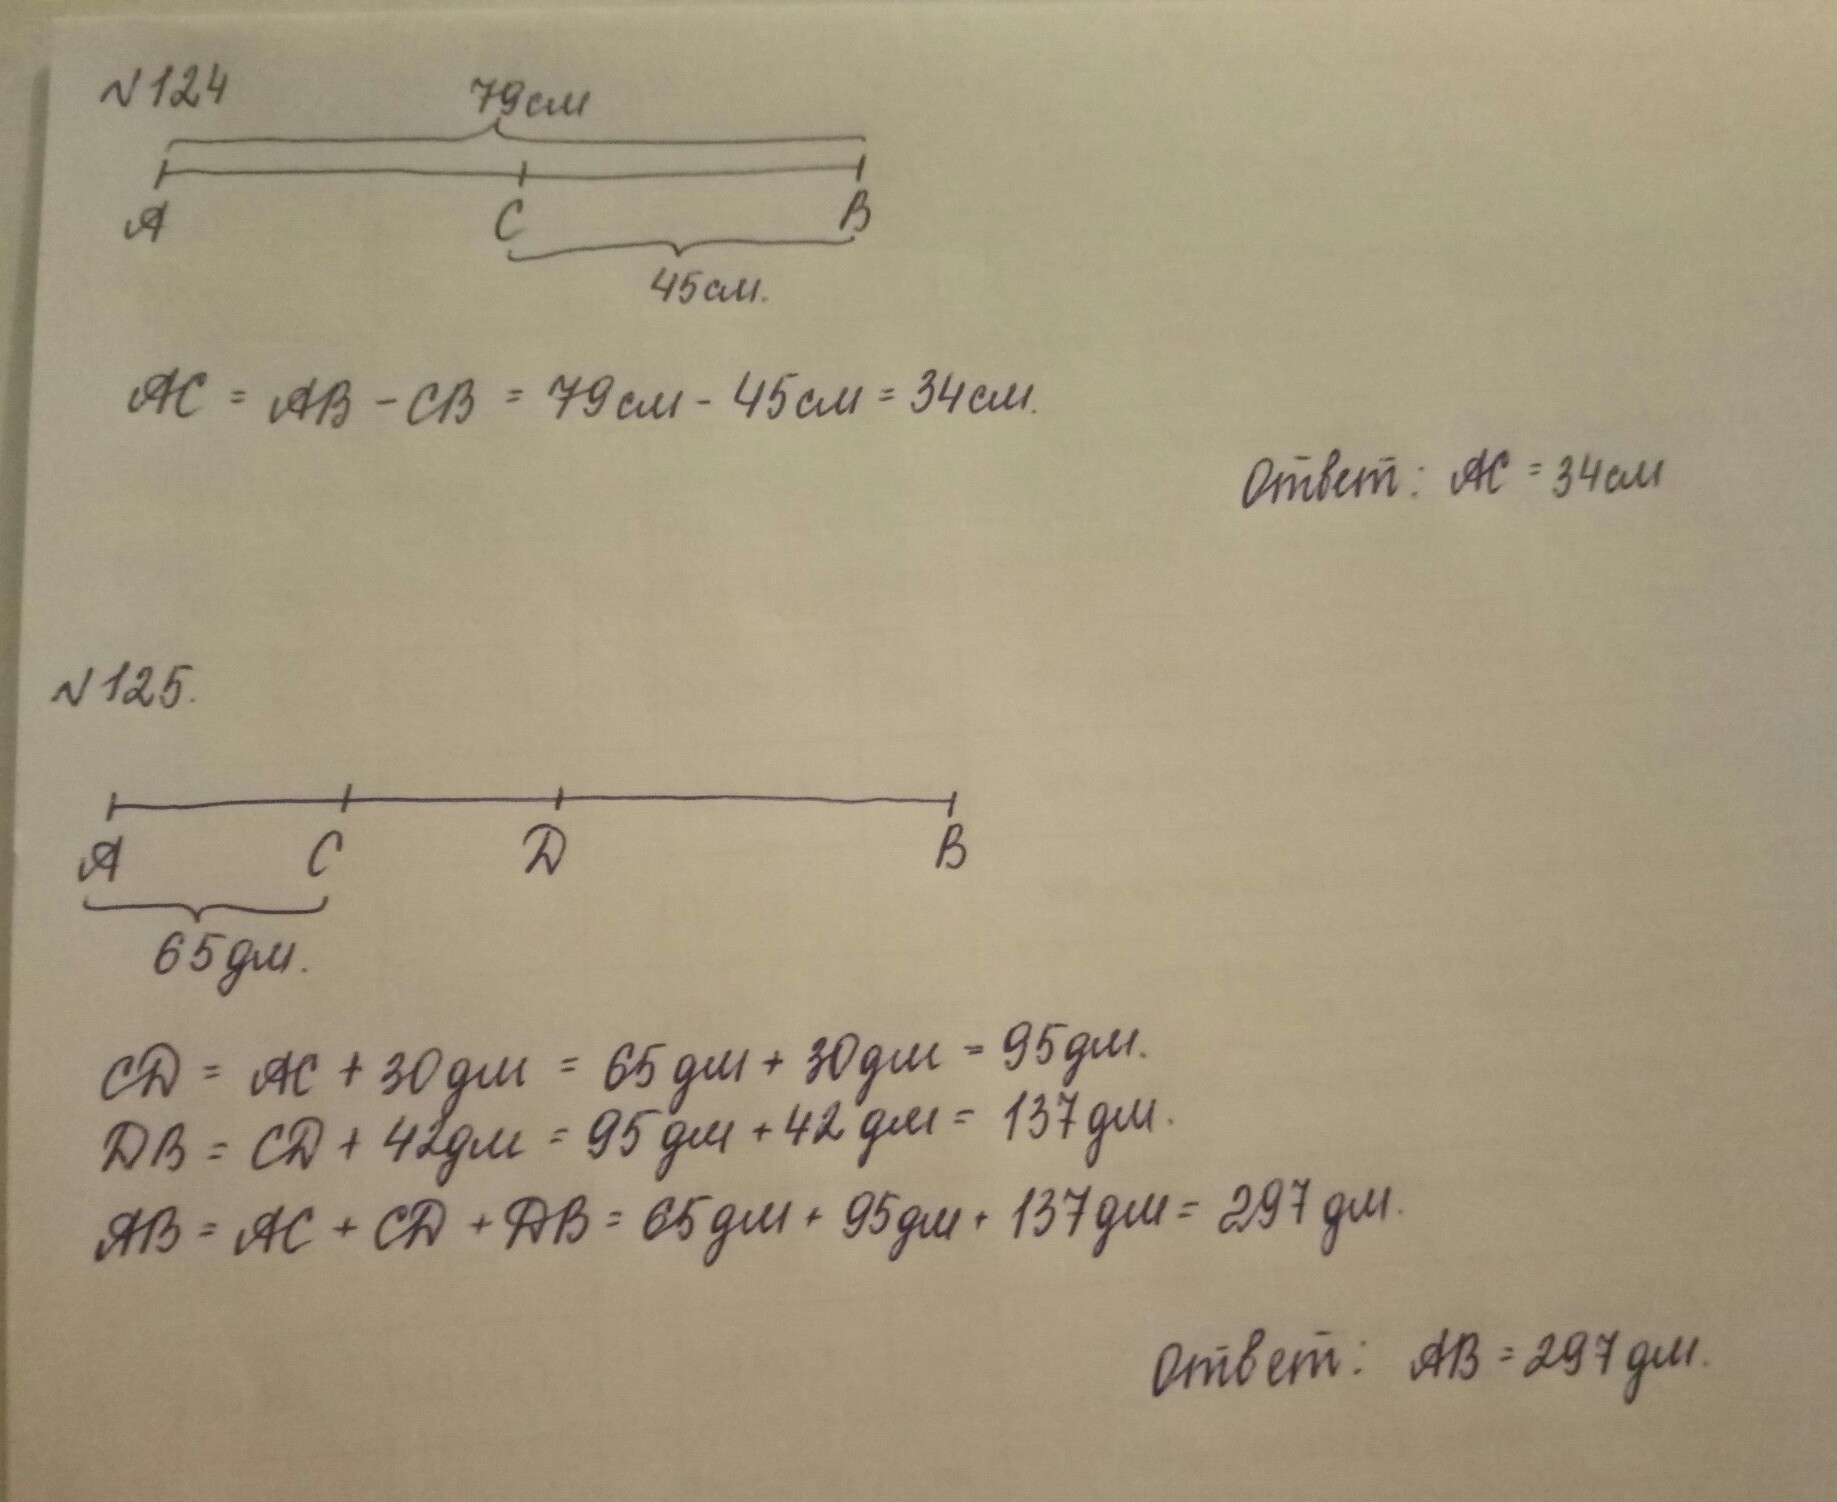 N124
79см
A C B
45см.
AC = AB - CB = 79см - 45см = 34см.
Ответ: AC = 34см
N125.
A C D B
65дм.
CD = AC + 30дм = 65дм + 30дм = 95дм.
DB = CD + 42дм = 95дм + 42дм = 137дм.
AB = AC + CD + DB = 65дм + 95дм + 137дм = 297дм.
Ответ: AB = 297дм.